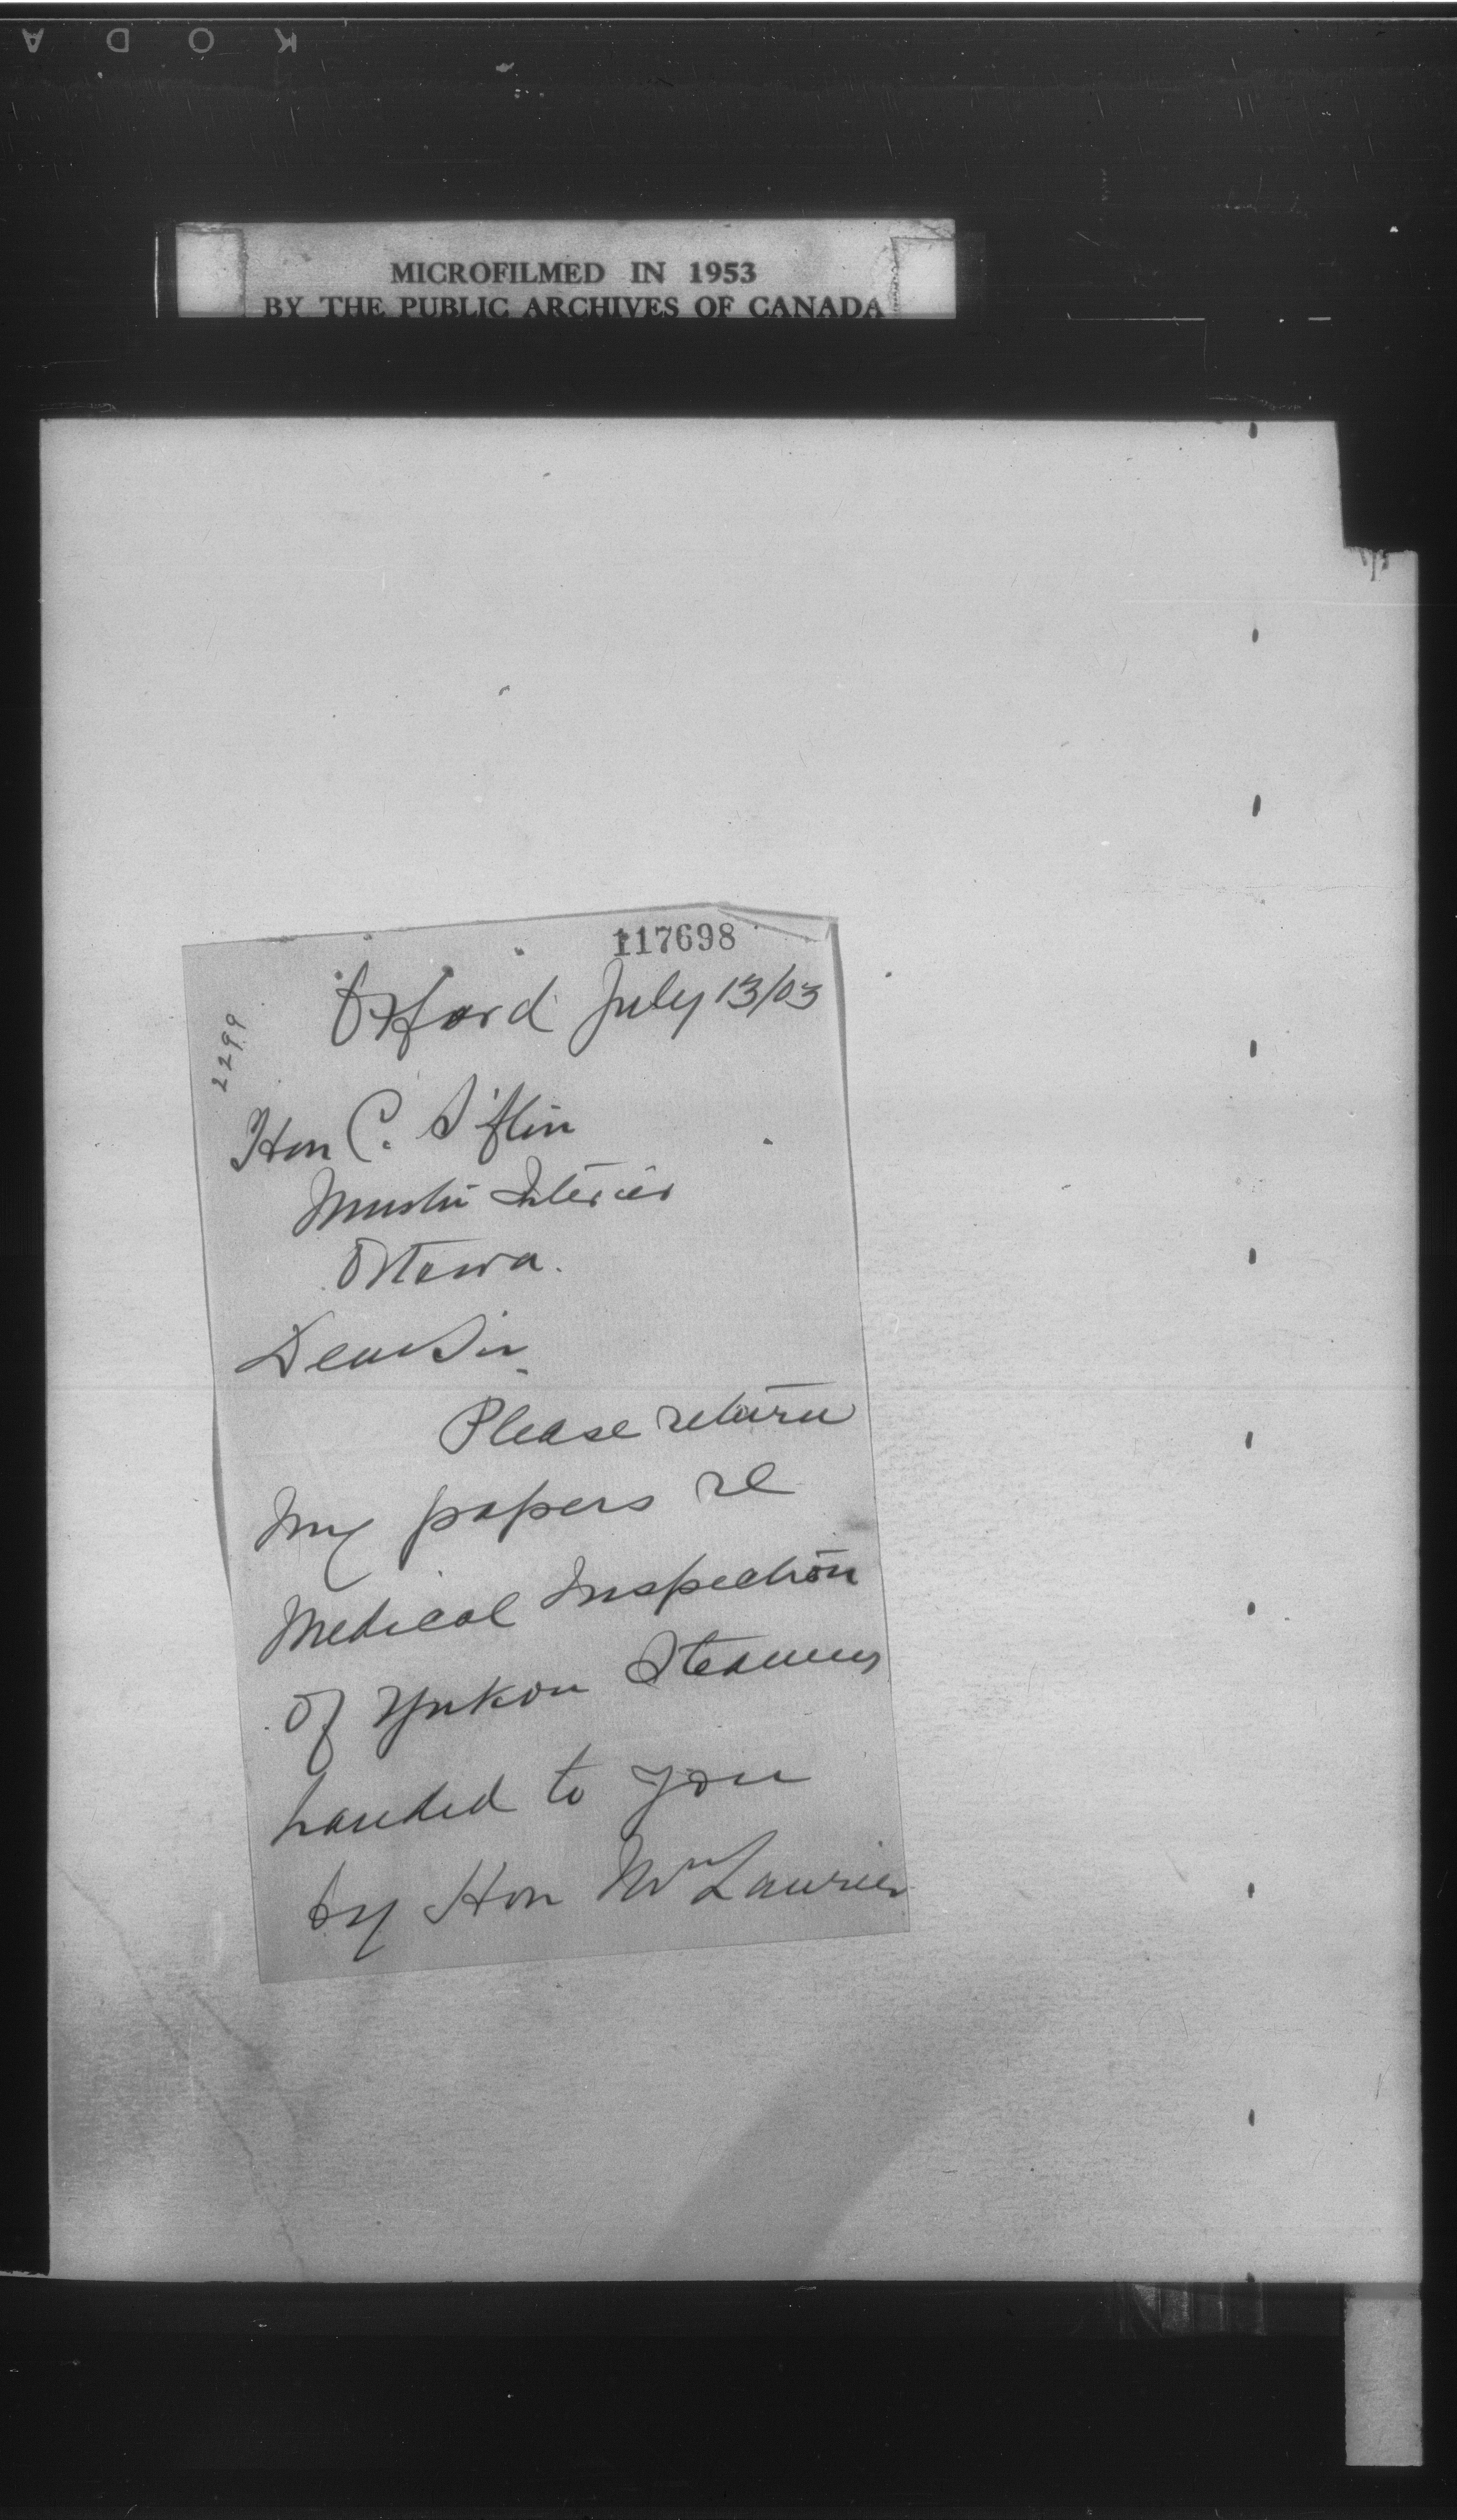 KODA
MICROFILMED IN 1953
BY THE PUBLIC ARCHIVES OF CANADA
117698
2299
Oxford July 13/03
Hon C. Siftin
Interior
Ottawa.
Dear Sir
Please return
my papers re
Medical Inspection
of Yukon Steamers
handed to you
by Hon Mr Laurier